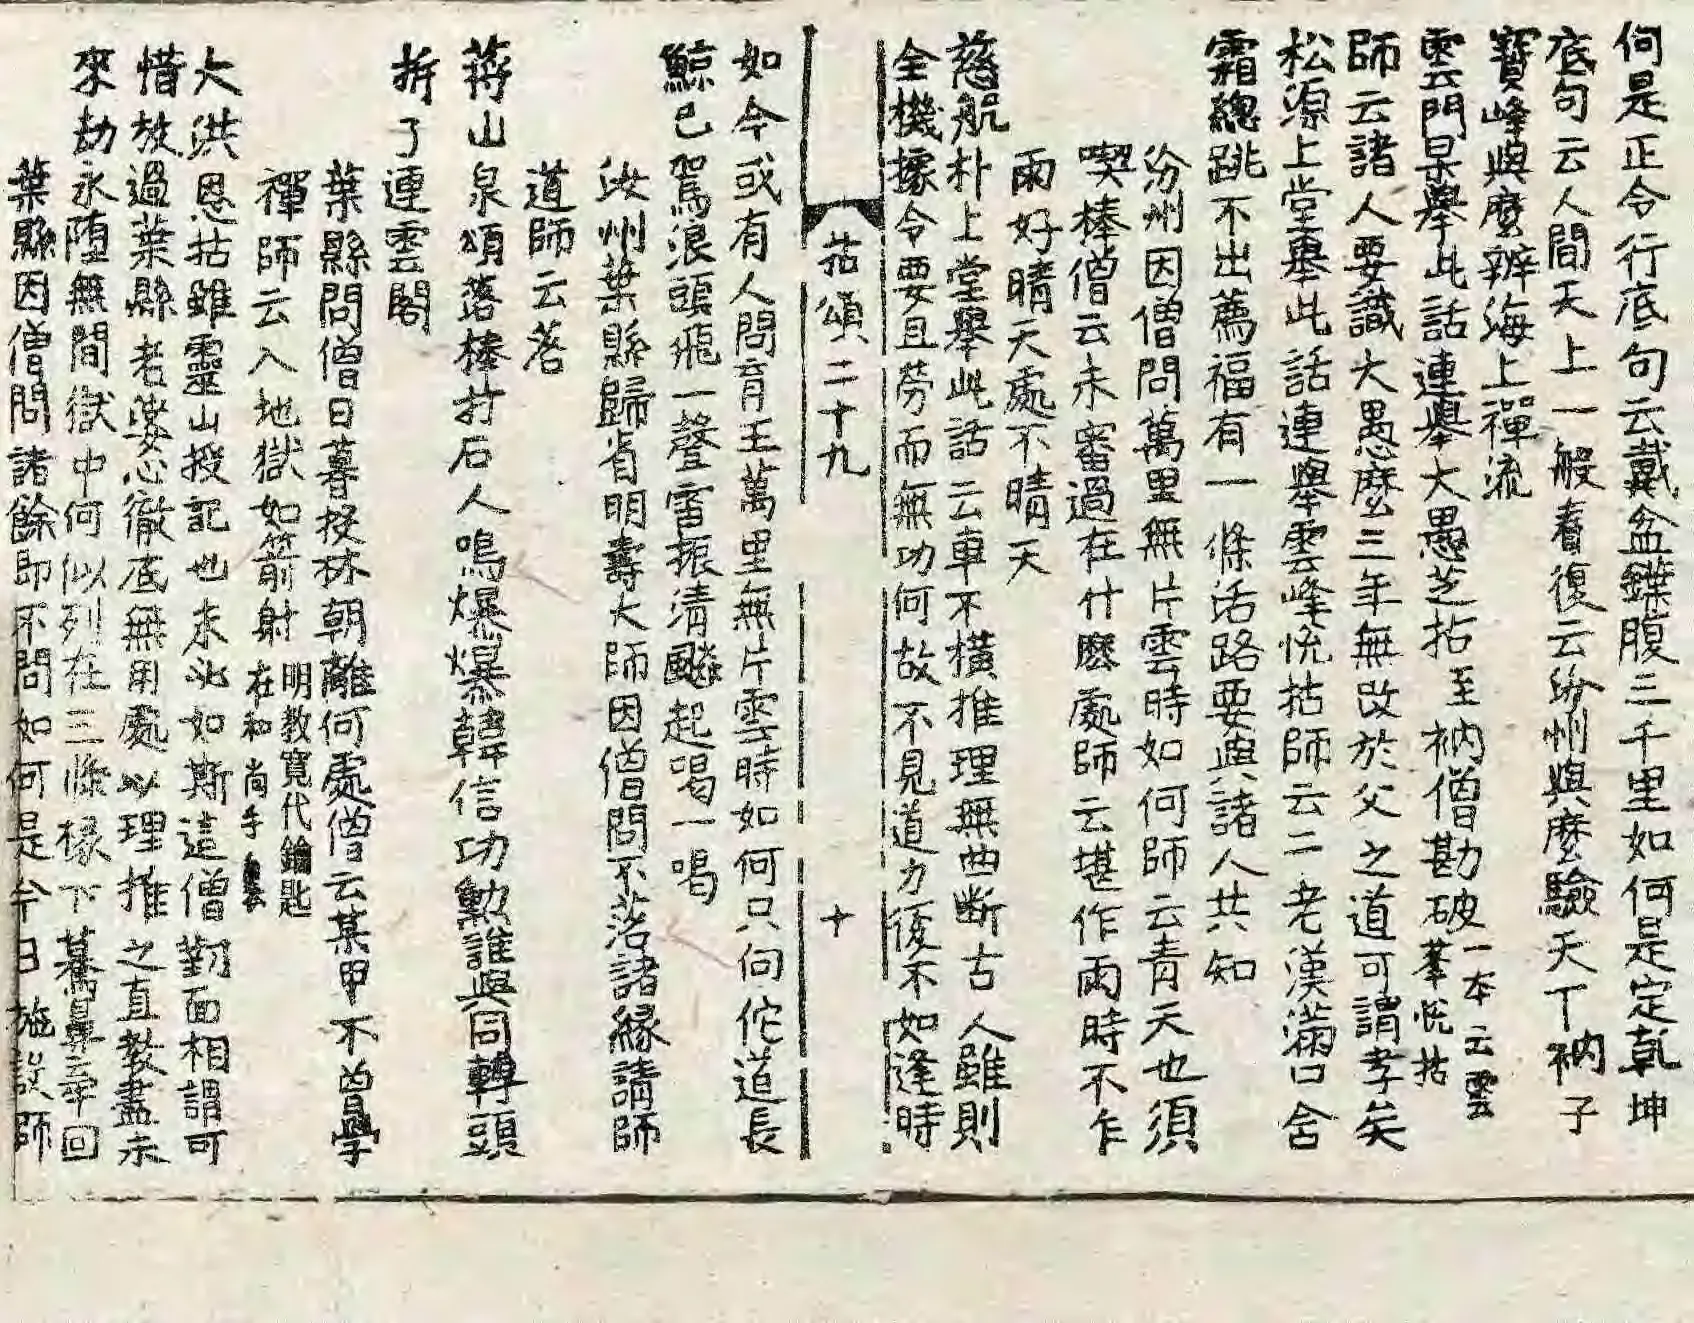 何是正令行底句云戴盆鏷腹三千里如何是定乹坤
底句云人間天上一般春復云汾州與麽驗天下衲子
寶峰與麽辨海上禪流
雲門杲擧此話連擧大愚芝拈至衲僧勘破一本云雲峯悅拈
師云諸人要識大愚麽三年無改於父之道可謂孝矣
松源上堂擧此話連擧雲峰悅拈師云二老漢滿口含
霜總跳不出薦福有一條活路要與諸人共知
汾州因僧問萬里無片雲時如何師云青天也須
喫棒僧云未審過在什麽處師云堪作雨時不乍
雨好晴天處不晴天
慈航朴上堂擧此話云車不橫推理無曲断古人雖則
全機據令要且勞而無功何故不見道力彽不如逢時
拈頌二十九
十
如今或有人問育王萬里無片雲時如何只向佗道長
鯨已駕浪頭飛一聲雷振清飈起喝一喝
汝州葉縣歸省明壽大師因僧問不落諸緣請師
道師云落
蔣山泉頌落棒打石人鳴爆爆韓信功勲誰與同轉頭
拆了連雲閣
葉縣問僧日暮投林朝離何處僧云某甲不曾學
禪師云入地獄如箭射明教寬代鑰匙在和尚手裏
大洪恩拈雖靈山授記也未必如斯這僧覿面相謂可
惜放過葉縣老婆心徹底無用處以理推之直教盡未
來劫永墮無間獄中何似列在三條椽下驀鼻牽回
葉縣因僧問諸餘即不問如何是今日施設師